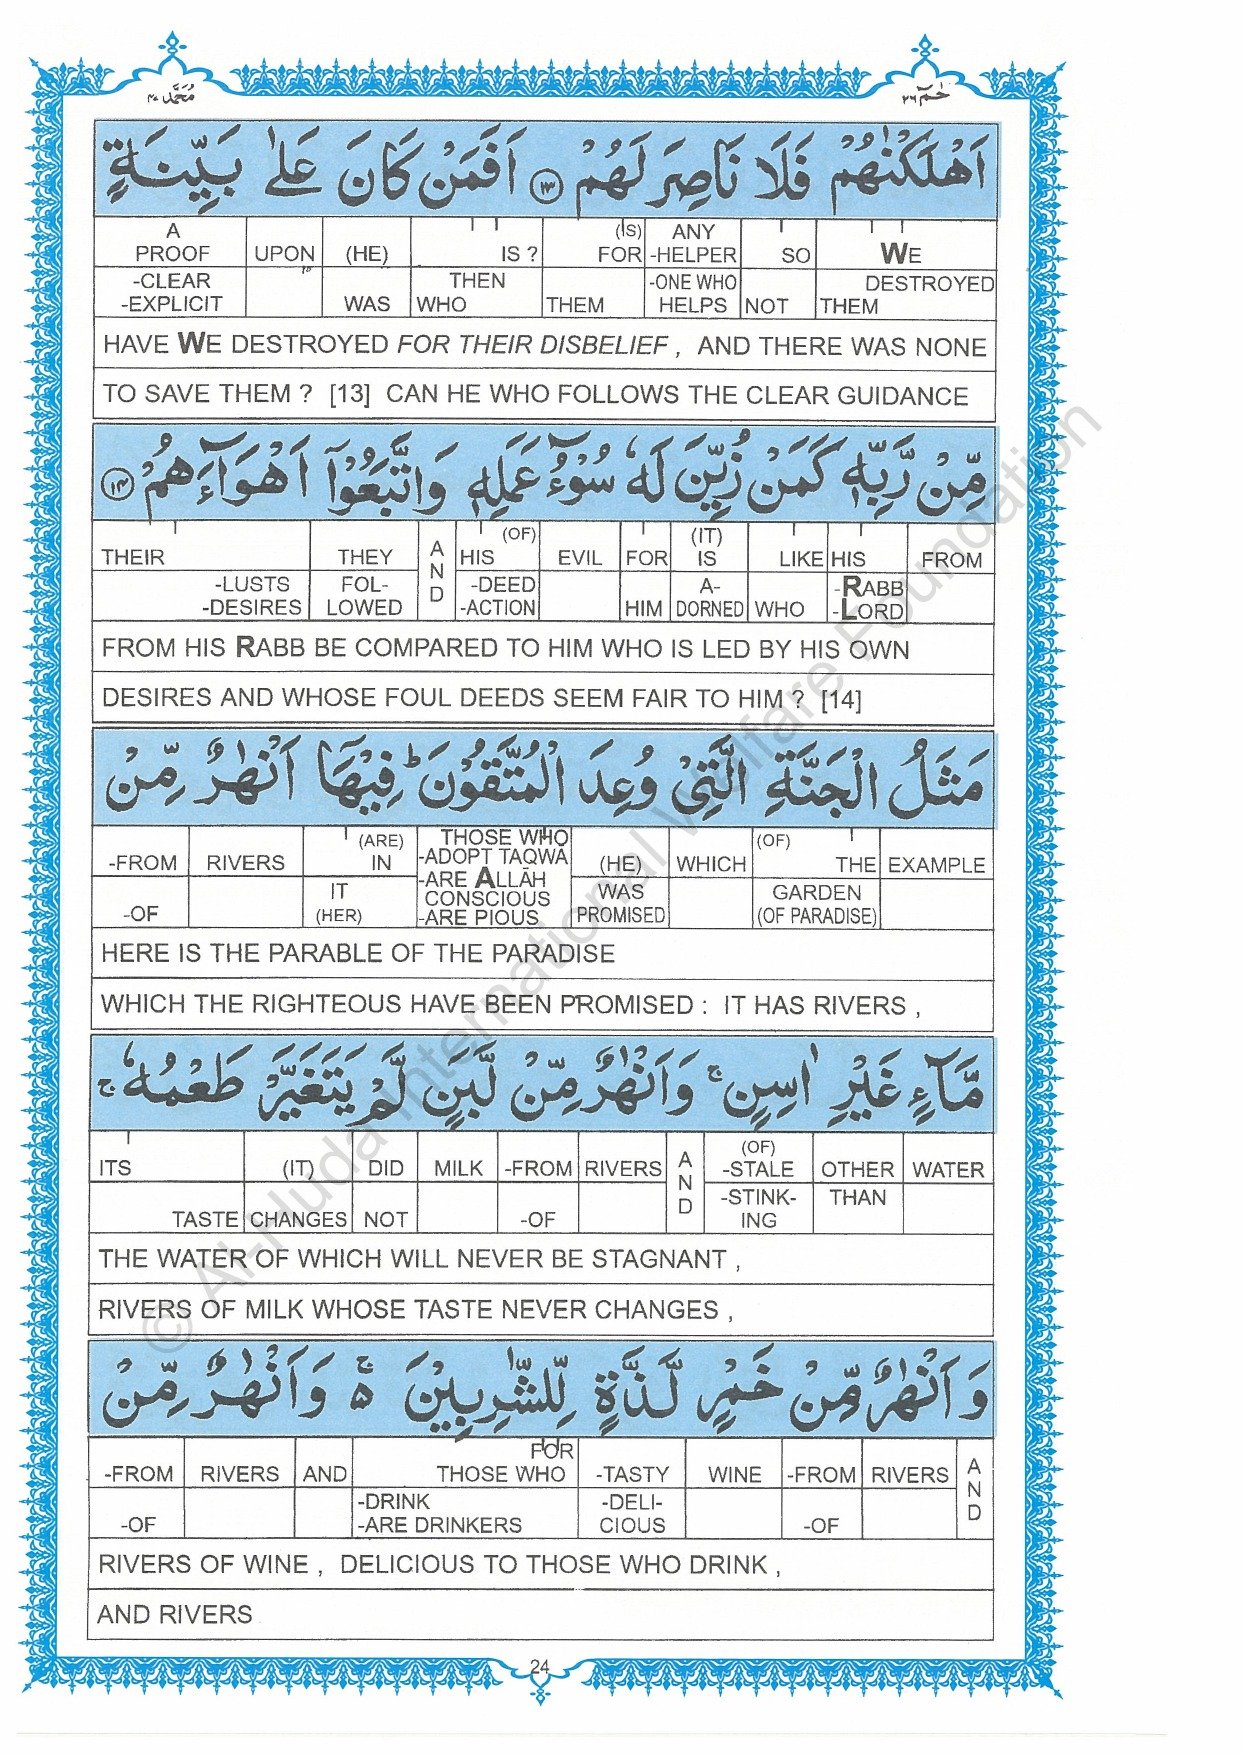 مُحَمَّد ٤٧ حٰمٓ ٢٦
اَهْلَكْنٰهُمْ فَلَا نَاصِرَ لَهُمْ ١٣ اَفَمَنْ كَانَ عَلٰى بَيِّنَةٍ
A PROOF UPON (HE) IS ? (IS) FOR ANY -HELPER SO WE
-CLEAR -EXPLICIT WAS THEN WHO THEM -ONE WHO HELPS NOT DESTROYED THEM
HAVE WE DESTROYED FOR THEIR DISBELIEF , AND THERE WAS NONE
TO SAVE THEM ? [13] CAN HE WHO FOLLOWS THE CLEAR GUIDANCE
مِّنْ رَّبِّهٖ كَمَنْ زُيِّنَ لَهٗ سُوْٓءُ عَمَلِهٖ وَاتَّبَعُوْٓا اَهْوَآءَهُمْ ١٤
THEIR THEY AND HIS (OF) EVIL FOR (IT) IS LIKE HIS FROM
-LUSTS -DESIRES FOL- LOWED -DEED -ACTION HIM A- DORNED WHO -RABB -LORD
FROM HIS RABB BE COMPARED TO HIM WHO IS LED BY HIS OWN
DESIRES AND WHOSE FOUL DEEDS SEEM FAIR TO HIM ? [14]
مَثَلُ الْجَنَّةِ الَّتِيْ وُعِدَ الْمُتَّقُوْنَ ؕ فِيْهَآ اَنْهٰرٌ مِّنْ
-FROM RIVERS (ARE) IN THOSE WHO -ADOPT TAQWA (HE) WHICH (OF) THE EXAMPLE
-OF IT (HER) -ARE ALLĀH CONSCIOUS -ARE PIOUS WAS PROMISED GARDEN (OF PARADISE)
HERE IS THE PARABLE OF THE PARADISE
WHICH THE RIGHTEOUS HAVE BEEN PROMISED : IT HAS RIVERS ,
مَّآءٍ غَيْرِ اٰسِنٍ ۚ وَاَنْهٰرٌ مِّنْ لَّبَنٍ لَّمْ يَتَغَيَّرْ طَعْمُهٗ ۚ
ITS (IT) DID MILK -FROM RIVERS AND (OF) -STALE OTHER WATER
TASTE CHANGES NOT -OF -STINK- ING THAN
THE WATER OF WHICH WILL NEVER BE STAGNANT ,
RIVERS OF MILK WHOSE TASTE NEVER CHANGES ,
وَاَنْهٰرٌ مِّنْ خَمْرٍ لَّذَّةٍ لِّلشّٰرِبِيْنَ ۚ۬ وَاَنْهٰرٌ مِّنْ
-FROM RIVERS AND FOR THOSE WHO -TASTY WINE -FROM RIVERS AND
-OF -DRINK -ARE DRINKERS -DELI- CIOUS -OF
RIVERS OF WINE , DELICIOUS TO THOSE WHO DRINK ,
AND RIVERS
24
© Al-Huda International Welfare Foundation